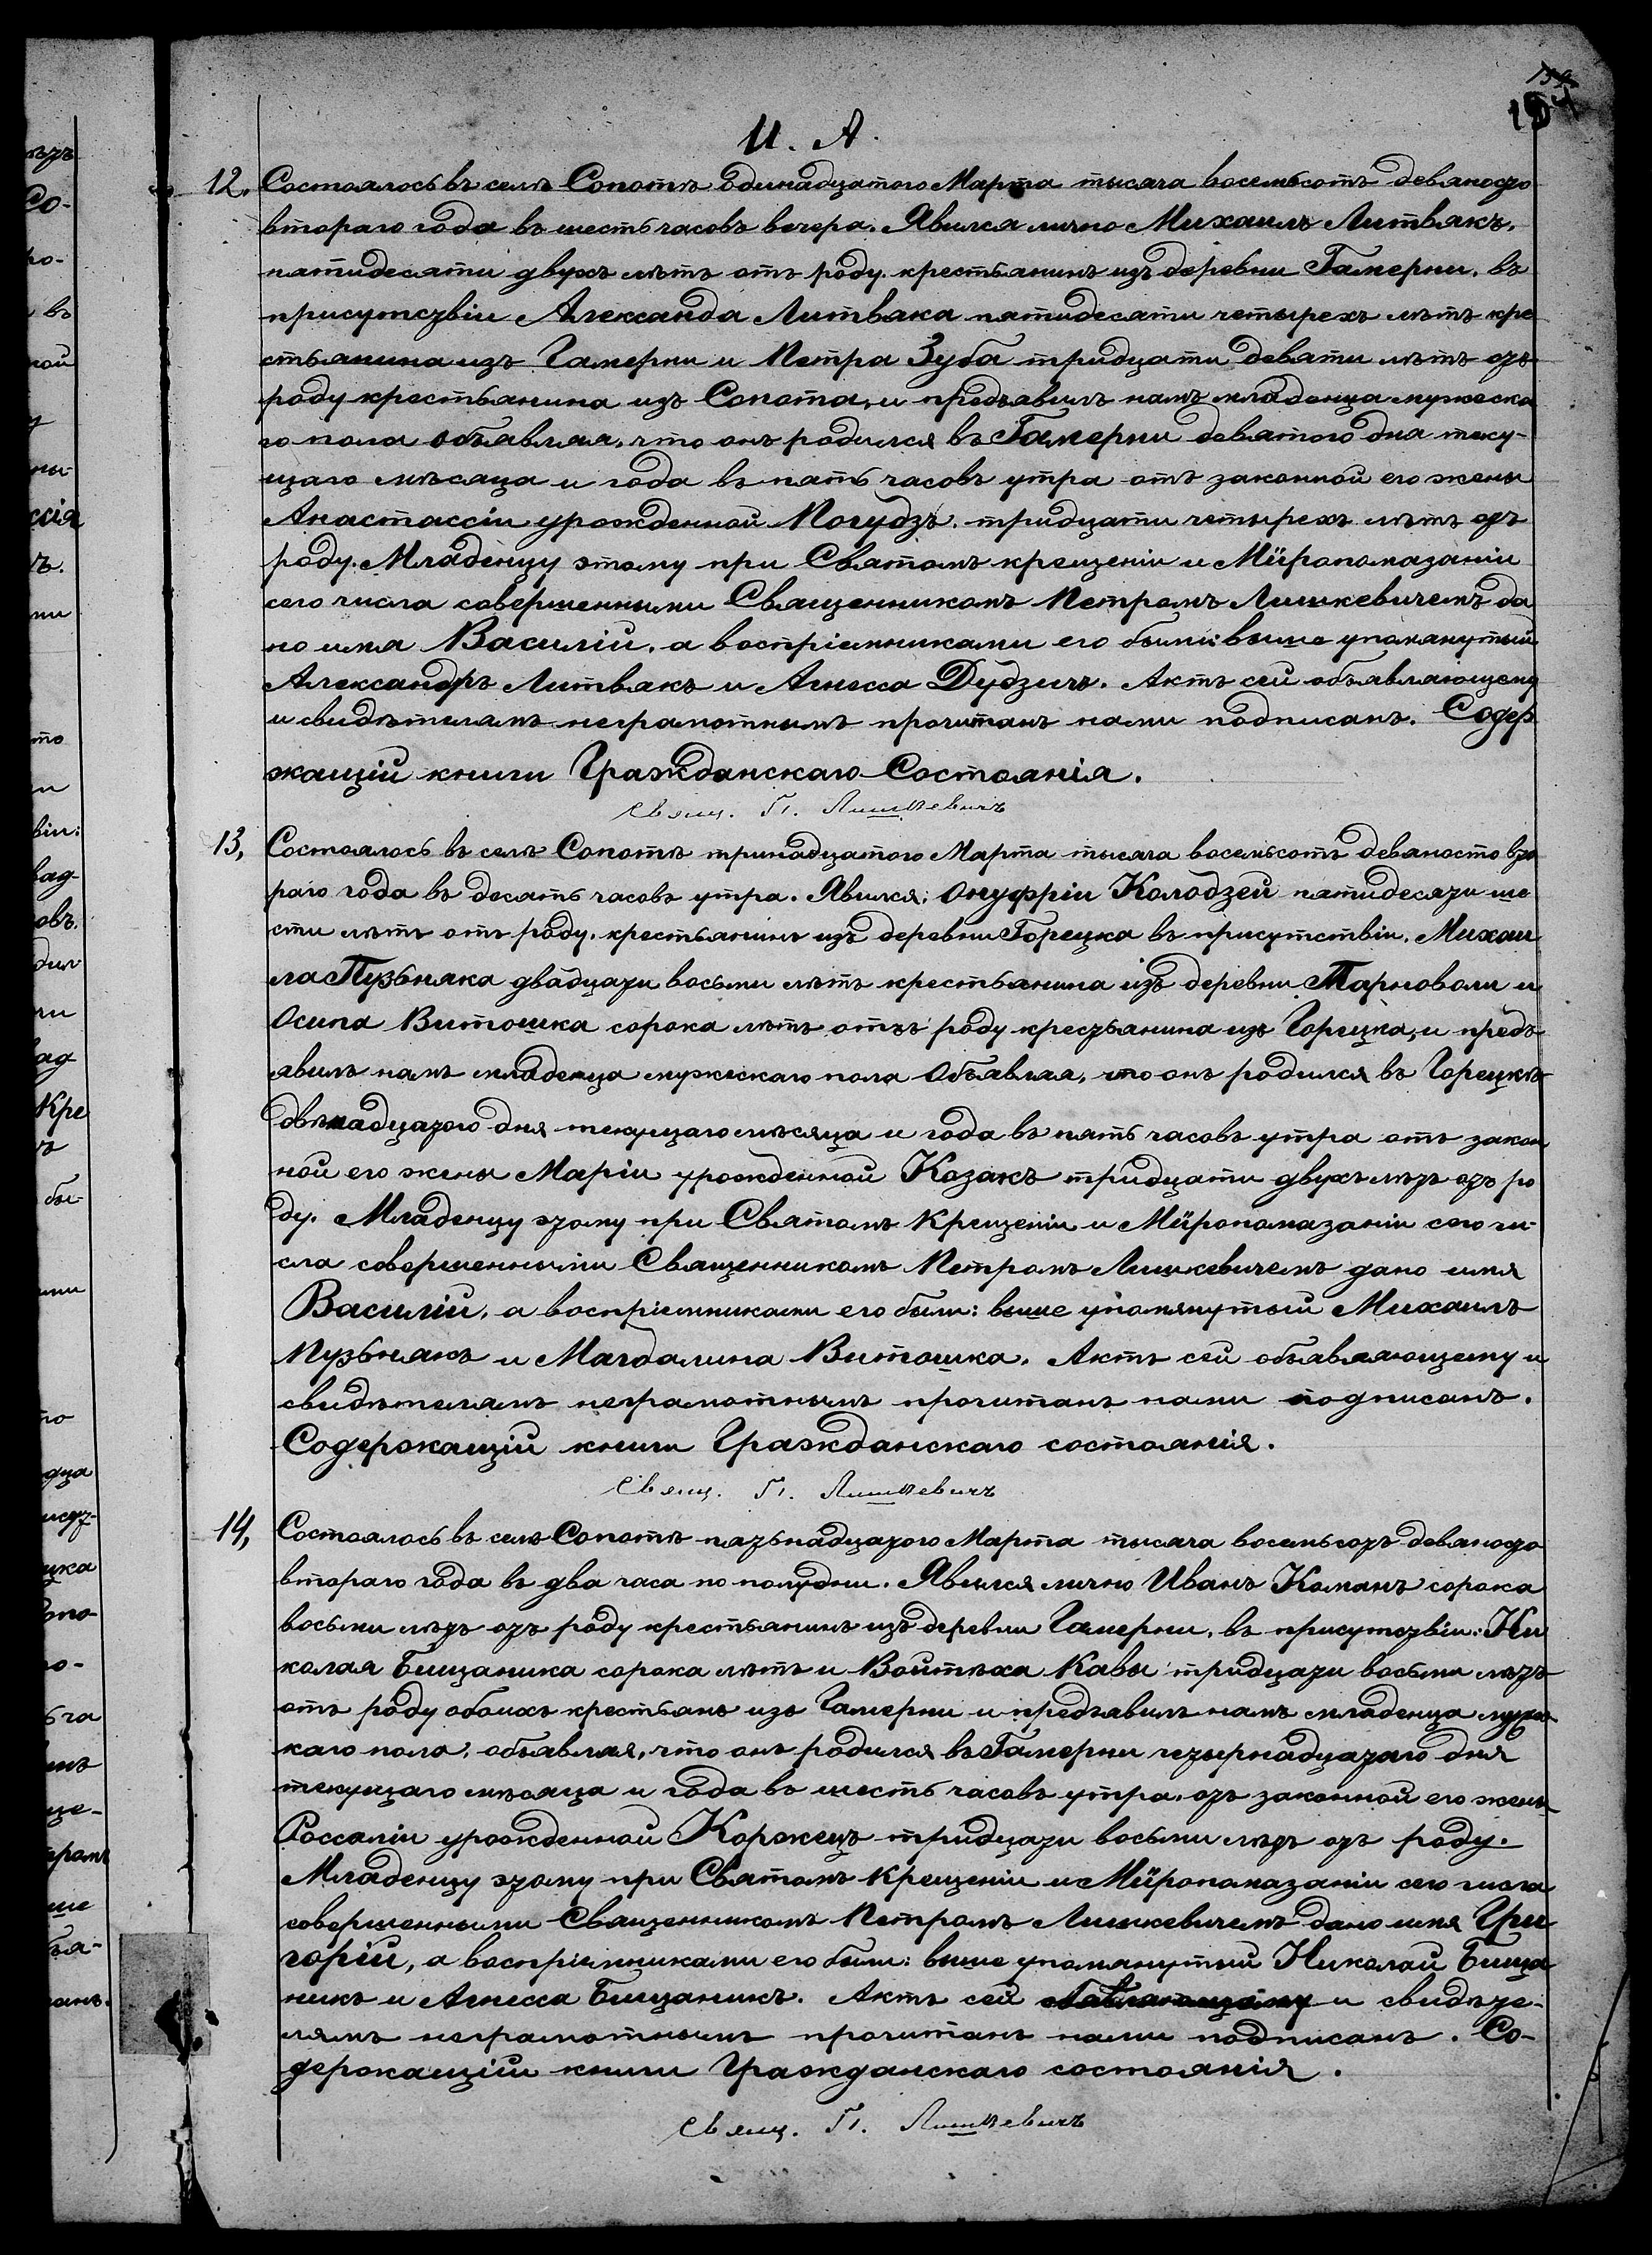 И. А.
12. Состоялось въ селѣ Сопотѣ одинадцатого Марта тысяча восемьсотъ девяносто
втораго года въ шесть часовъ вечера. Явился лично Михаилъ Литвякъ,
пятидесяти двухъ лѣтъ отъ роду. крестьянинъ изъ деревни Гамерни. въ
присутствіи Александа Литвяка пятидесяти четырехъ лѣтъ кре
стьянина изъ Гамерни и Петра Зуба тридцати девяти лѣтъ отъ
роду крестьянина изъ Сопота, и предъявилъ намъ младенца мужеска
го пола объявляя, что онъ родился въ Гамерни девятого дня теку-
щаго мѣсяца и года въ пять часовъ утра отъ законной его жены
Анастассіи урожденной Погудзъ. тридцати четырехъ лѣтъ отъ
роду. Младенцу этому при Святомъ крещеніи и Мѵропомазаніи
сего числа совершенными Священникомъ Петромъ Лишкевичемъ да
но имя Василій. а воспріемниками его были: выше упомянутый
Александръ Литвякъ и Агнесса Дудзичъ. Актъ сей объявляющему
и свидѣтелямъ неграмотнымъ прочитанъ нами подписанъ. Содер
жащій книги Гражданскаго Состоянія.
Свящ. П. Лишкевичъ
13, Состоялось въ селѣ Сопотѣ тринадцатого Марта тысяча восемьсотъ девяносто вто
раго года въ десять часовъ утра. Явился: Онуфріи Колодзей пятидесяти ше
сти лѣтъ отъ роду. крестьянинъ изъ деревни Горецка въ присутствіи. Михаи
ла Пузьняка двадцати восьми лѣтъ крестьянина изъ деревни Тарноволи и
Осипа Витошка сорока лѣтъ отъ роду крестьянина изъ Горецка, и предъ
явилъ намъ младенца мужескаго пола Объявляя, что онъ родился въ Горецкѣ
двѣнадцатого дня текущаго мѣсяца и года въ пять часовъ утра отъ закон
ной его жены Маріи урожденной Козакъ тридцати двухъ лѣтъ отъ ро
ду. Младенцу этому при Святомъ Крещеніи и Мѵропомазаніи сего чи-
сла совершенными Священникомъ Петромъ Лишкевичемъ дано имя
Василій, а воспріемниками его были: выше упомянутый Михаилъ
Пузьнякъ и Магдалина Витошка. Актъ сей объявляющему и
свидѣтелямъ неграмотнымъ прочитанъ нами подписанъ.
Содержащій книги Гражданскаго состоянія.
Свящ. П. Лишкевичъ
14, Состоялось въ селѣ Сопотѣ пятьнадцатого Марта тысяча восемьсотъ девяносто
втораго года въ два часа по полудни. Явился лично Иванъ Команъ сорока
восьми лѣтъ отъ роду крестьянинъ изъ деревни Гамерни. въ присутствіи: Ни
колая Бищаника сорока лѣтъ и Войтѣха Кавы тридцати восьми лѣтъ
отъ роду обоихъ крестьянъ изъ Гамерни и предъявилъ намъ младенца мужес
каго пола, объявляя, что онъ родился въ Гамерни четырнадцатаго дня
текущаго мѣсяца и года въ шесть часовъ утра, отъ законной его жены
Россаліи урожденной Корожецъ тридцати восьми лѣтъ отъ роду.
Младенцу этому при Святомъ Крещеніи и Мѵропомазаніи сего числа
совершенными Священникомъ Петромъ Лишкевичемъ дано имя Гри
горій, а воспріемниками его были: выше упомянутый Николай Бища
никъ и Агнесса Бищаникъ. Актъ сей объявляющему и свидѣте-
лямъ неграмотнымъ прочитанъ нами подписанъ. Со-
держащій книги Гражданскаго состоянія.
Свящ. П. Лишкевичъ